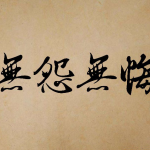 無怨無悔